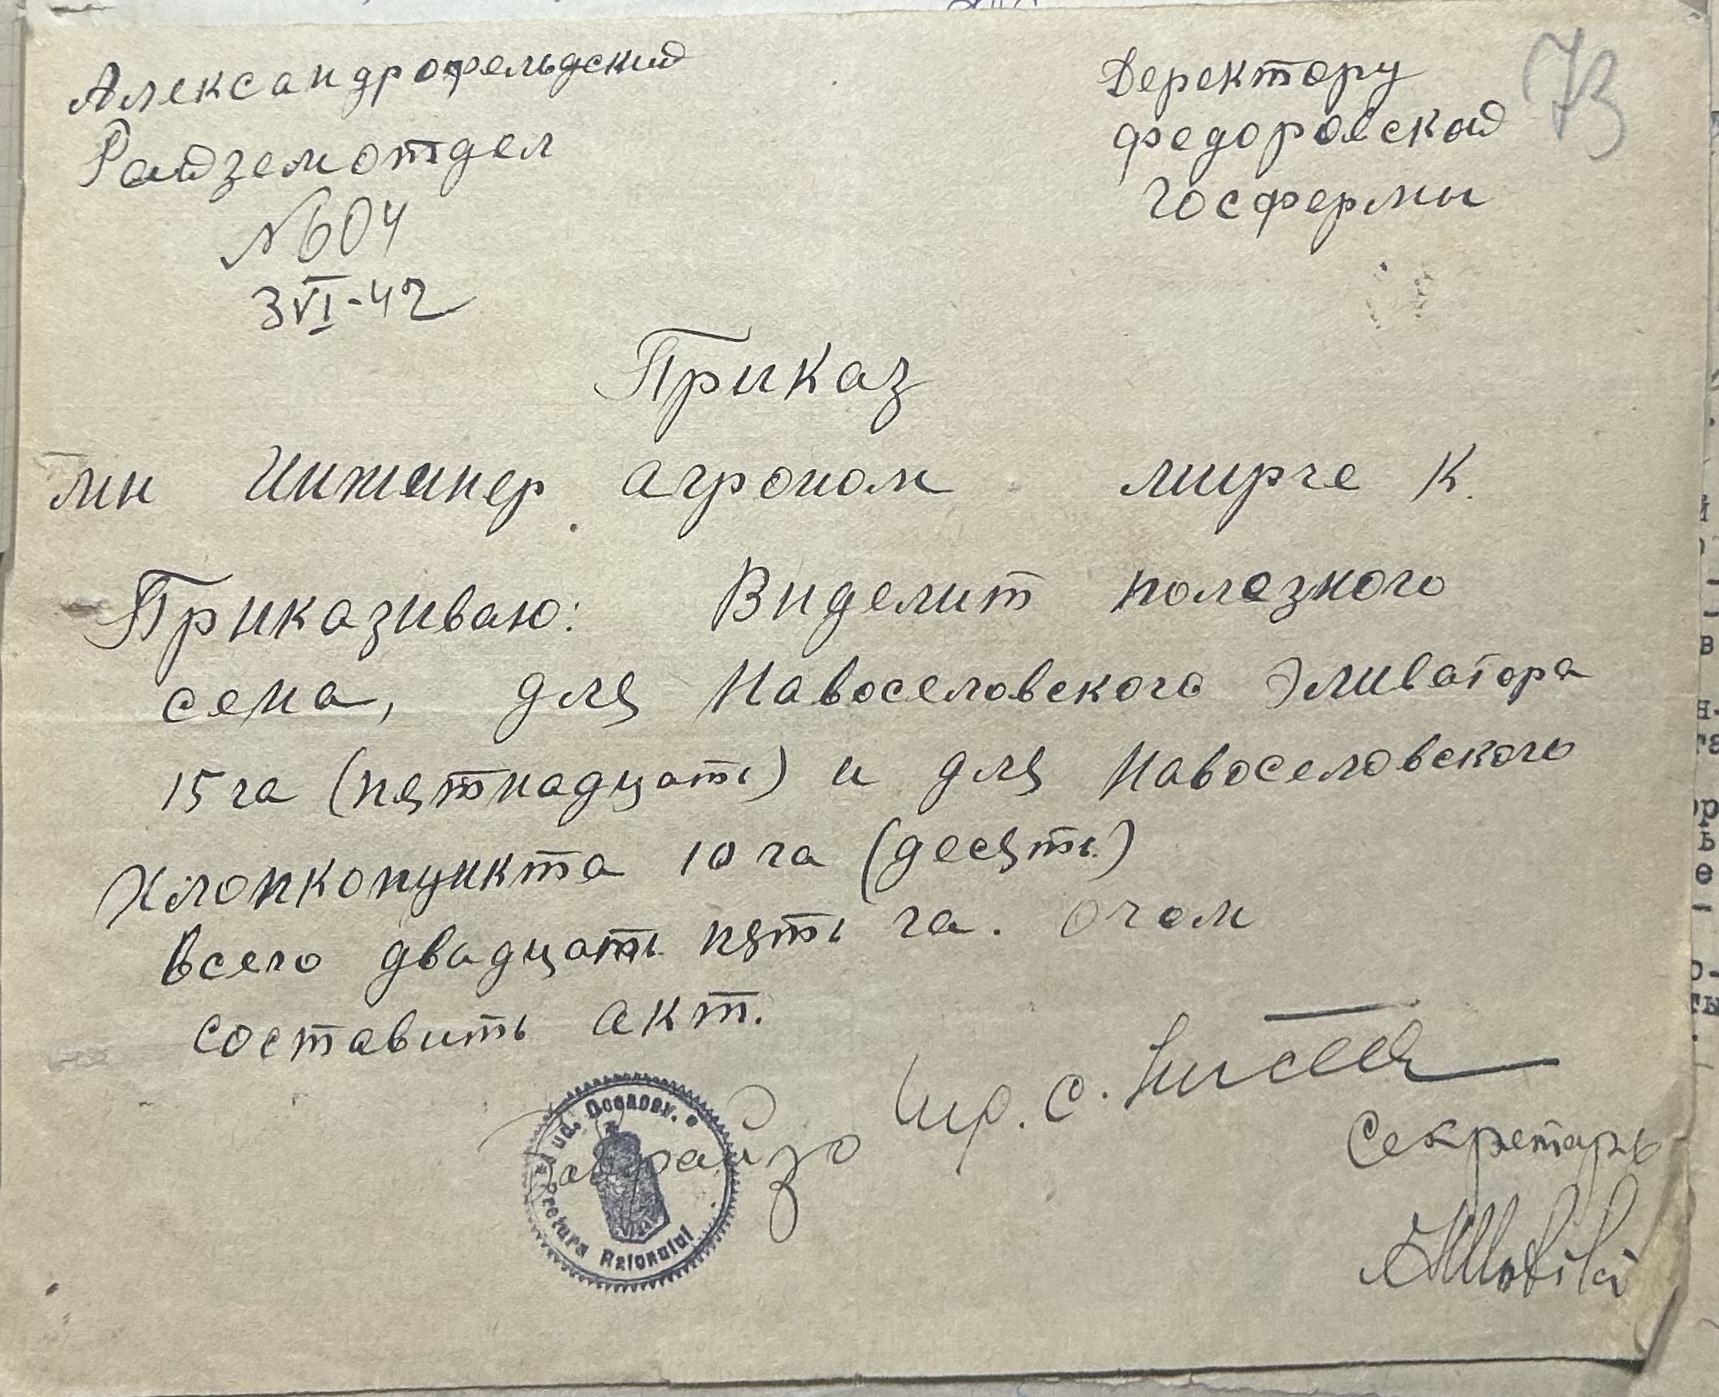 Александрофельдский
Райземотдел
№604
3 VI-42
Деректору
федоровской
госфермы
73
Приказ
мы Инжинер агроном мирче К.
Приказиваю: Виделит полезного
сена, для Навоселовского Эливатора
15 га (пятнадцать) и для Навоселовского
Хлопкопункта 10 га (десять)
Всего двадцать пять га. Очем
составить акт.
Завірайзо
Секретарь
Jud. Oceacov.
Pretura Raionului